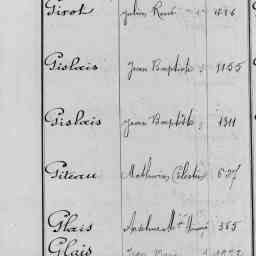 Girot Julien René 1216
Gislais Jean Baptiste 1155
Gislais Jean Baptiste 1311
Giteau Mathurin Céleste 637
Glais Anselme Mie 365
Glais Jean